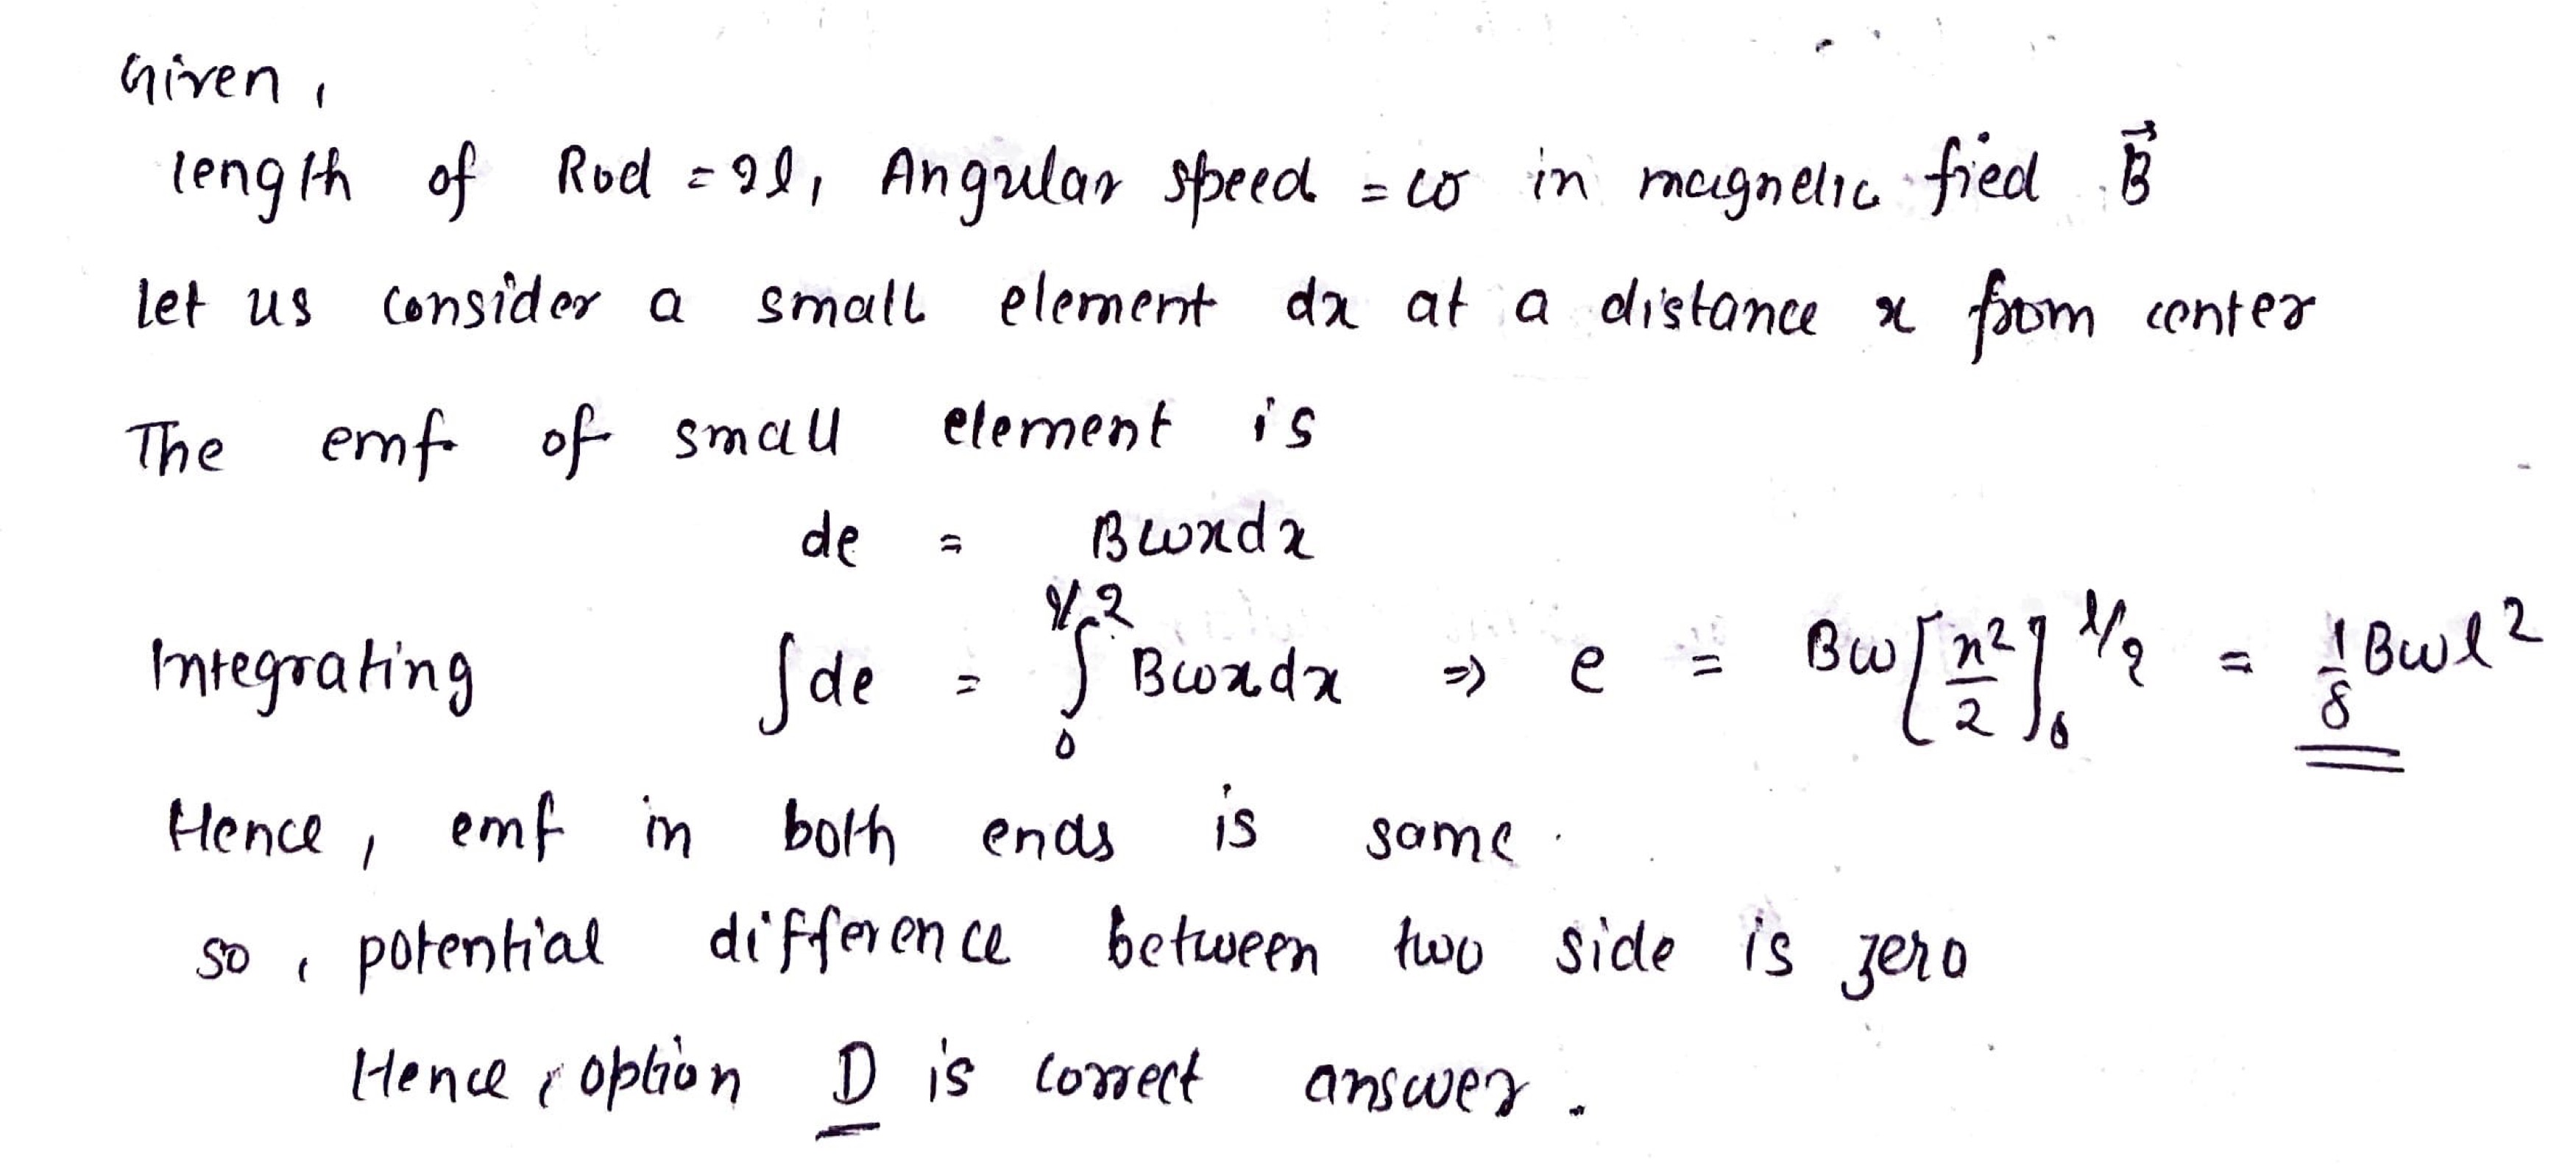 Given,
length of Rod = 2l, Angular speed = ω in magnetic fied B⃗
let us consider a small element dx at a distance x from center
The emf of small element is
de = Bωxdx
Integrating ∫de = ∫₀^{l/2} Bωxdx ⇒ e = Bω[x²/2]₀^{l/2} = 1/8 Bωl²
Hence, emf in both ends is same.
so, potential difference between two side is zero
Hence, option D is correct answer.